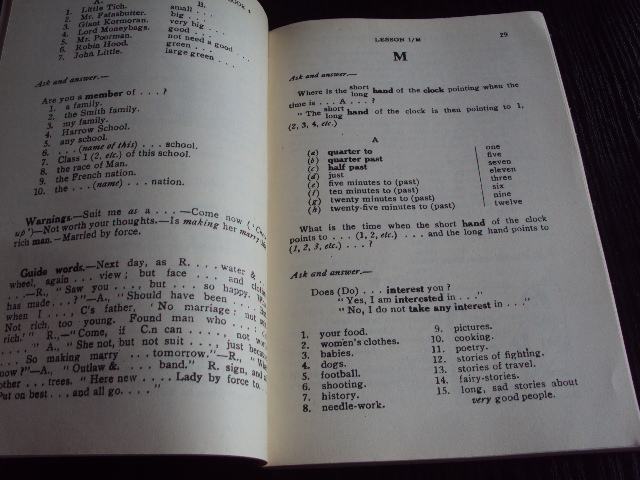 BOOK 1
A. B.
1. Little Tich. small . . .
2. Mr. Fatasbutter. big . . .
3. Giant Kormoran. very big . . .
4. Lord Moneybags. good . . .
5. Mr. Poorman. not need a good . . .
6. Robin Hood. green . . .
7. John Little. large green . . .
Ask and answer.—
Are you a member of . . . ?
1. a family.
2. the Smith family.
3. my family.
4. Harrow School.
5. any school.
6. . . . (name of this) . . . school.
7. Class 1 (2, etc.) of this school.
8. the race of Man.
9. the French nation.
10. the . . . (name) . . . nation.
Warnings.—Suit me as a . . .—Come now (‘
up’)—Not worth your thoughts.—Is making her marry
rich man.—Married by force.
Guide words.—Next day, as R. . . . water &
wheel, again . . . view; but face . . . and clo
. . .—R., “Saw you, . . . but . . . so happy. W
has made . . . ?”—A., “Should have been . . .
when I . . . C's father, ‘No marriage; not su
Not rich, too young. Found man who . . .
rich.’” R., —“Come, if C.n can . . . , not wo
. . .” —A., “She not, but not suit . . . , just beca
. . . So making marry . . . tomorrow.”—R., “Wh
now?”—A., “Outlaw &. . . . band.” R. sign, and a
other . . . trees. “Here new . . . Lady by force to.
Put on best . . . and all go. . . . ”
LESSON 1/M 29
M
Ask and answer.—
Where is the short long hand of the clock pointing when the
time is . . . A . . . ?
“ The short long hand of the clock is then pointing to 1,
(2, 3, 4, etc.)
A
(a) quarter to one
(b) quarter past five
(c) half past seven
(d) just eleven
(e) five minutes to (past) three
(f) ten minutes to (past) six
(g) twenty minutes to (past) nine
(h) twenty-five minutes to (past) twelve
What is the time when the short hand of the clock
points to . . . (1, 2, etc.) . . . and the long hand points to
(1, 2, 3, etc.) . . . ?
Ask and answer.—
Does (Do) . . . interest you ?
“ Yes, I am interested in . . .”
“ No, I do not take any interest in . . .”
1. your food.
2. women's clothes.
3. babies.
4. dogs.
5. football.
6. shooting.
7. history.
8. needle-work.
9. pictures.
10. cooking.
11. poetry.
12. stories of fighting.
13. stories of travel.
14. fairy-stories.
15. long, sad stories about
very good people.